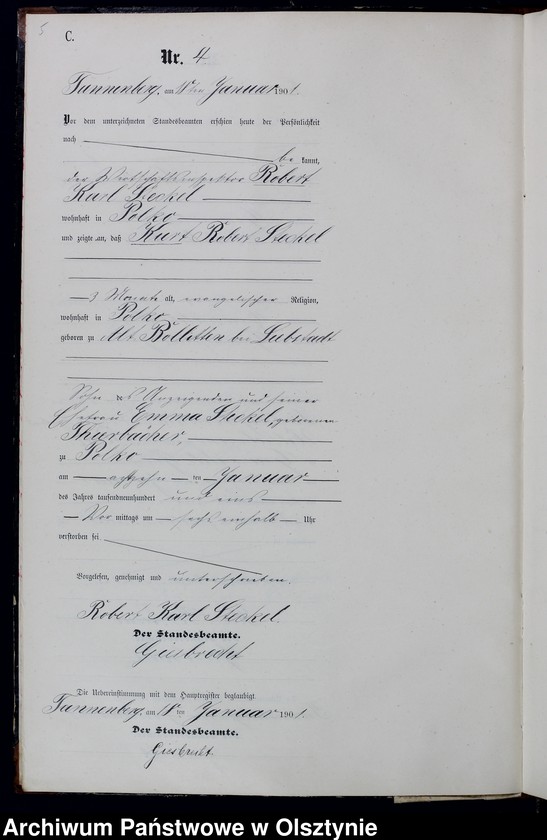 5
C.
Nr. 4.
Tannenberg, am 18 ten Januar 1901.
Vor dem unterzeichneten Standesbeamten erschien heute der Persönlichkeit
nach
be kannt,
der Wirthschaftsinspektor Robert
Karl Steckel
wohnhaft in Polko
und zeigte an, daß Kurt Robert Steckel
3 Monate alt, evangelischer Religion,
wohnhaft in Polko
geboren zu Alt Bolitten bei Liebstadt
Sohn des Anzeigenden und seiner
Ehefrau Emma Steckel, geborenen
zu Polko
am achtzehn ten Januar
des Jahres tausendneunhundert und eins
Vor mittags um sechs einhalb Uhr
verstorben sei
Vorgelesen, genehmigt und unterschrieben.
Robert Karl Steckel.
Der Standesbeamte.
Giesbrecht
Die Uebereinstimmung mit dem Hauptregister beglaubigt.
Tannenberg, am 18 ten Januar 1901.
Der Standesbeamte.
Giesbrecht.
Archiwum Państwowe w Olsztynie